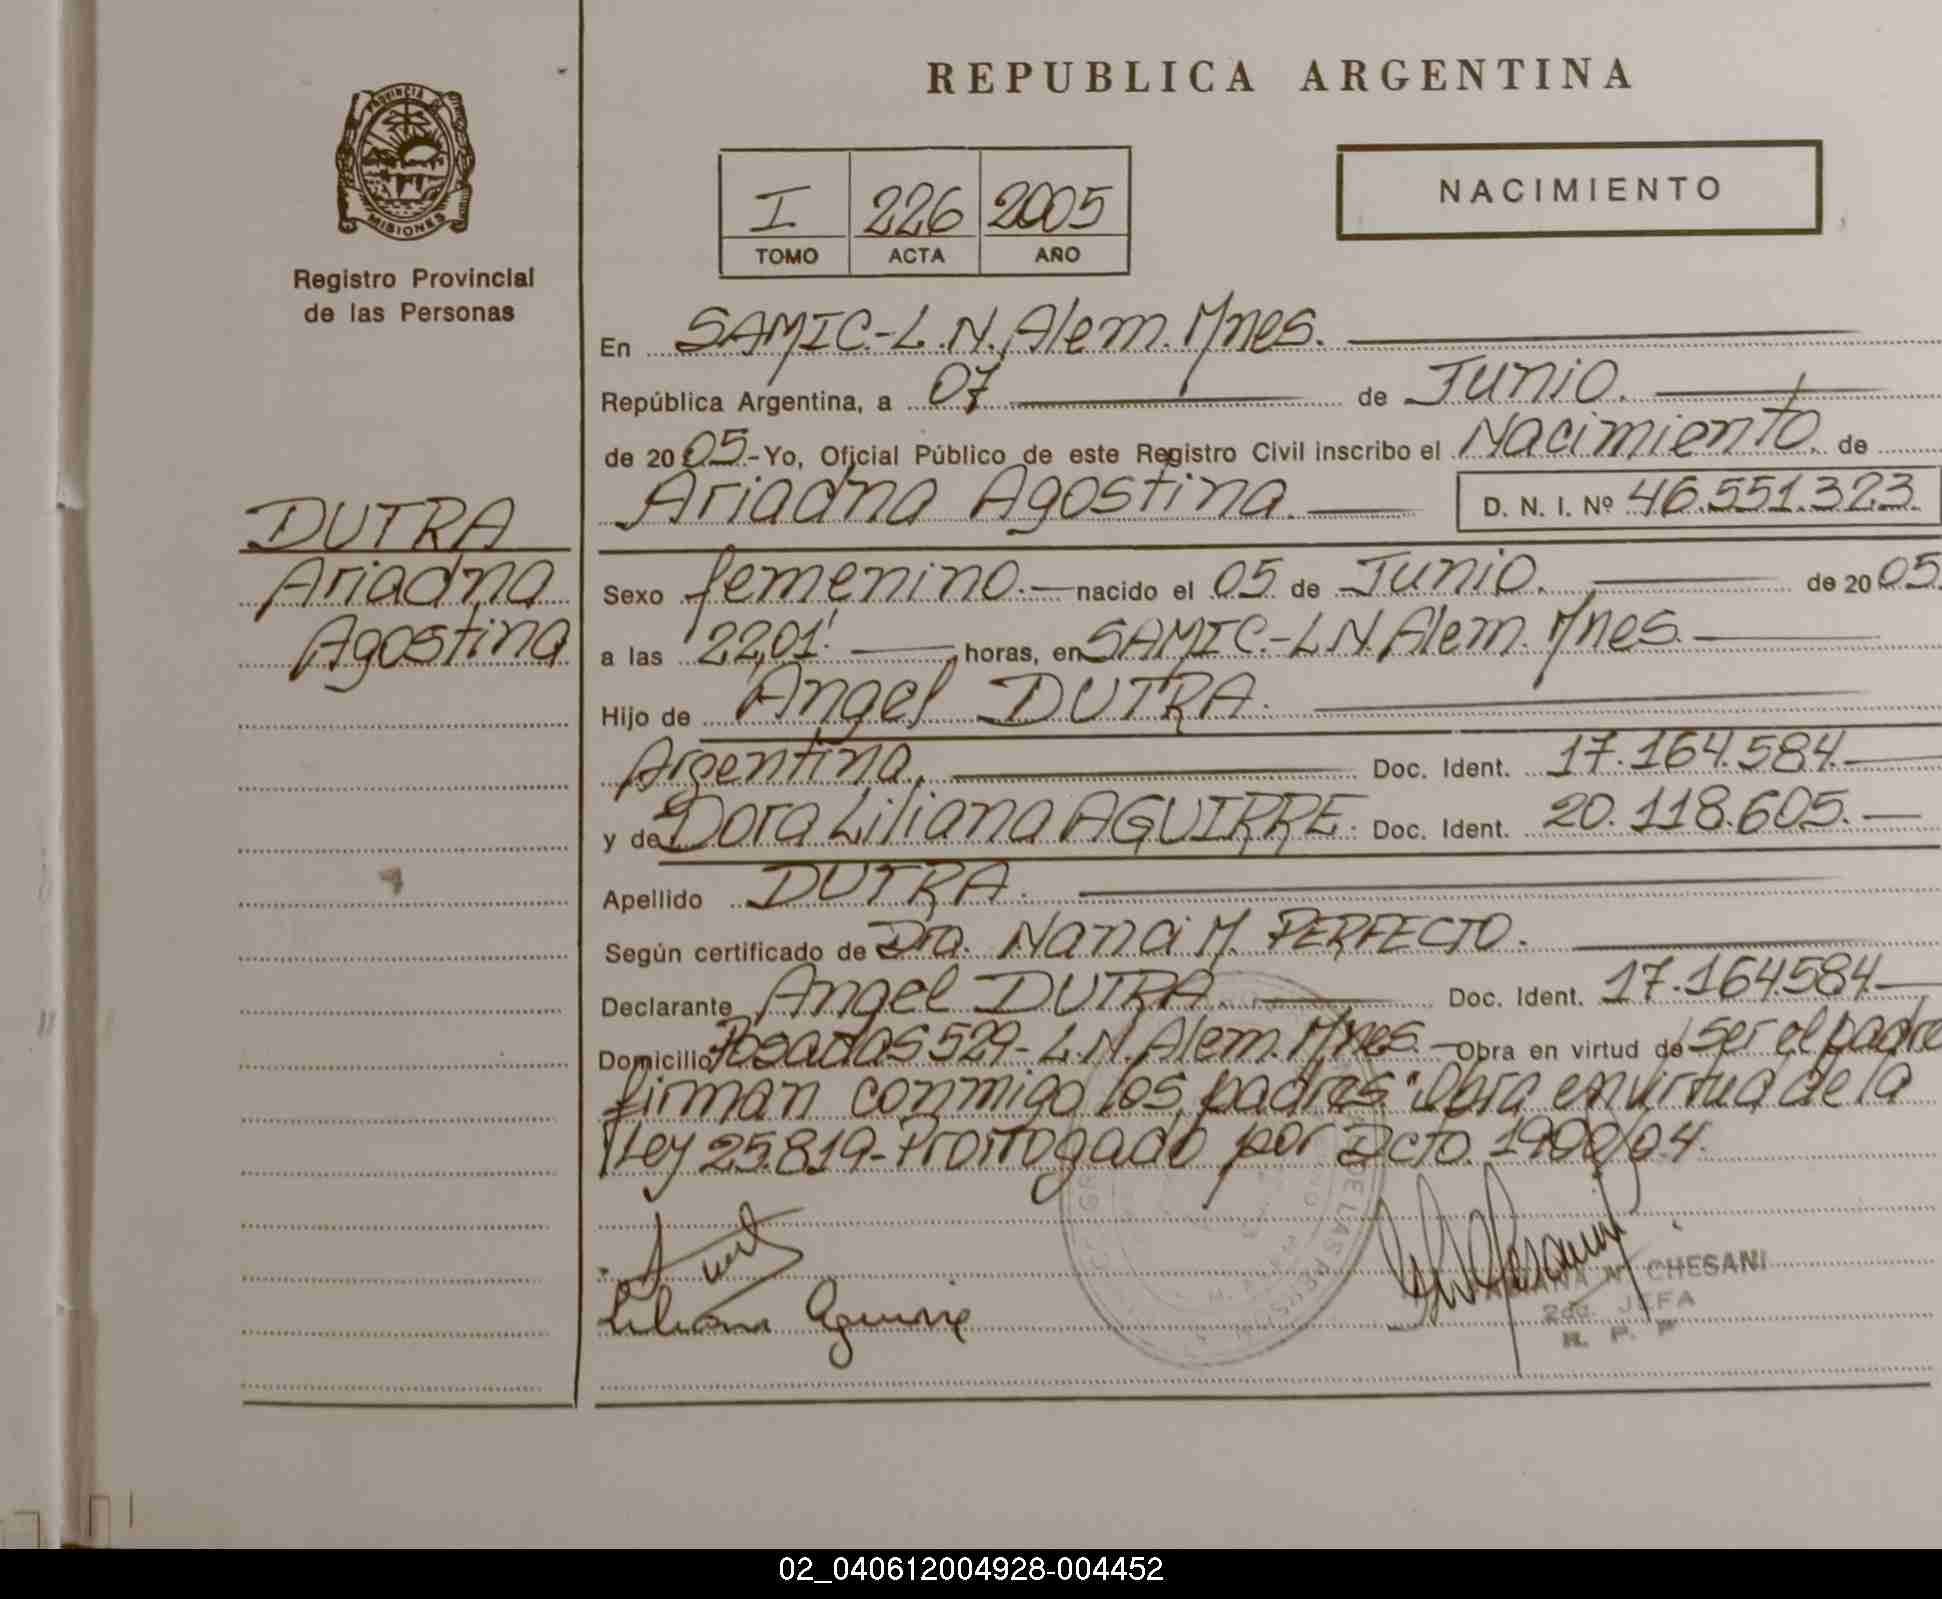 REPUBLICA ARGENTINA
PROVINCIA DE
MISIONES
Registro Provincial
de las Personas
I 226 2005
TOMO ACTA AÑO
NACIMIENTO
En SAMIC.-L.N.Alem.Mnes.
República Argentina, a 07 de Junio.
de 2005.-Yo, Oficial Público de este Registro Civil inscribo el Nacimiento. de
Ariadna Agostina. D. N. I. Nº 46.551.323.
DUTRA
Ariadna
Agostina
Sexo femenino.- nacido el 05 de Junio. de 2005.
a las 22,01' horas, en SAMIC.-L.N.Alem.Mnes.
Hijo de Angel DUTRA.
Argentina. Doc. Ident. 17.164.584.
y de Dora Liliana AGUIRRE. Doc. Ident. 20.118.605.
Apellido DUTRA.
Según certificado de Dra. Nanci M. PERFECTO.
Declarante Angel DUTRA. Doc. Ident. 17.164584.
Domicilio Posadas 529-L.N.Alem.Mnes.- Obra en virtud de ser el padre
firman conmigo los padres "Obra en virtud de la
Ley 25.819-Prorrogado por Dcto. 1900/04.
Liliana Aguirre
N. CHESANI
2da. JEFA
R. P. P
DE LAS PERSON
02_040612004928-004452